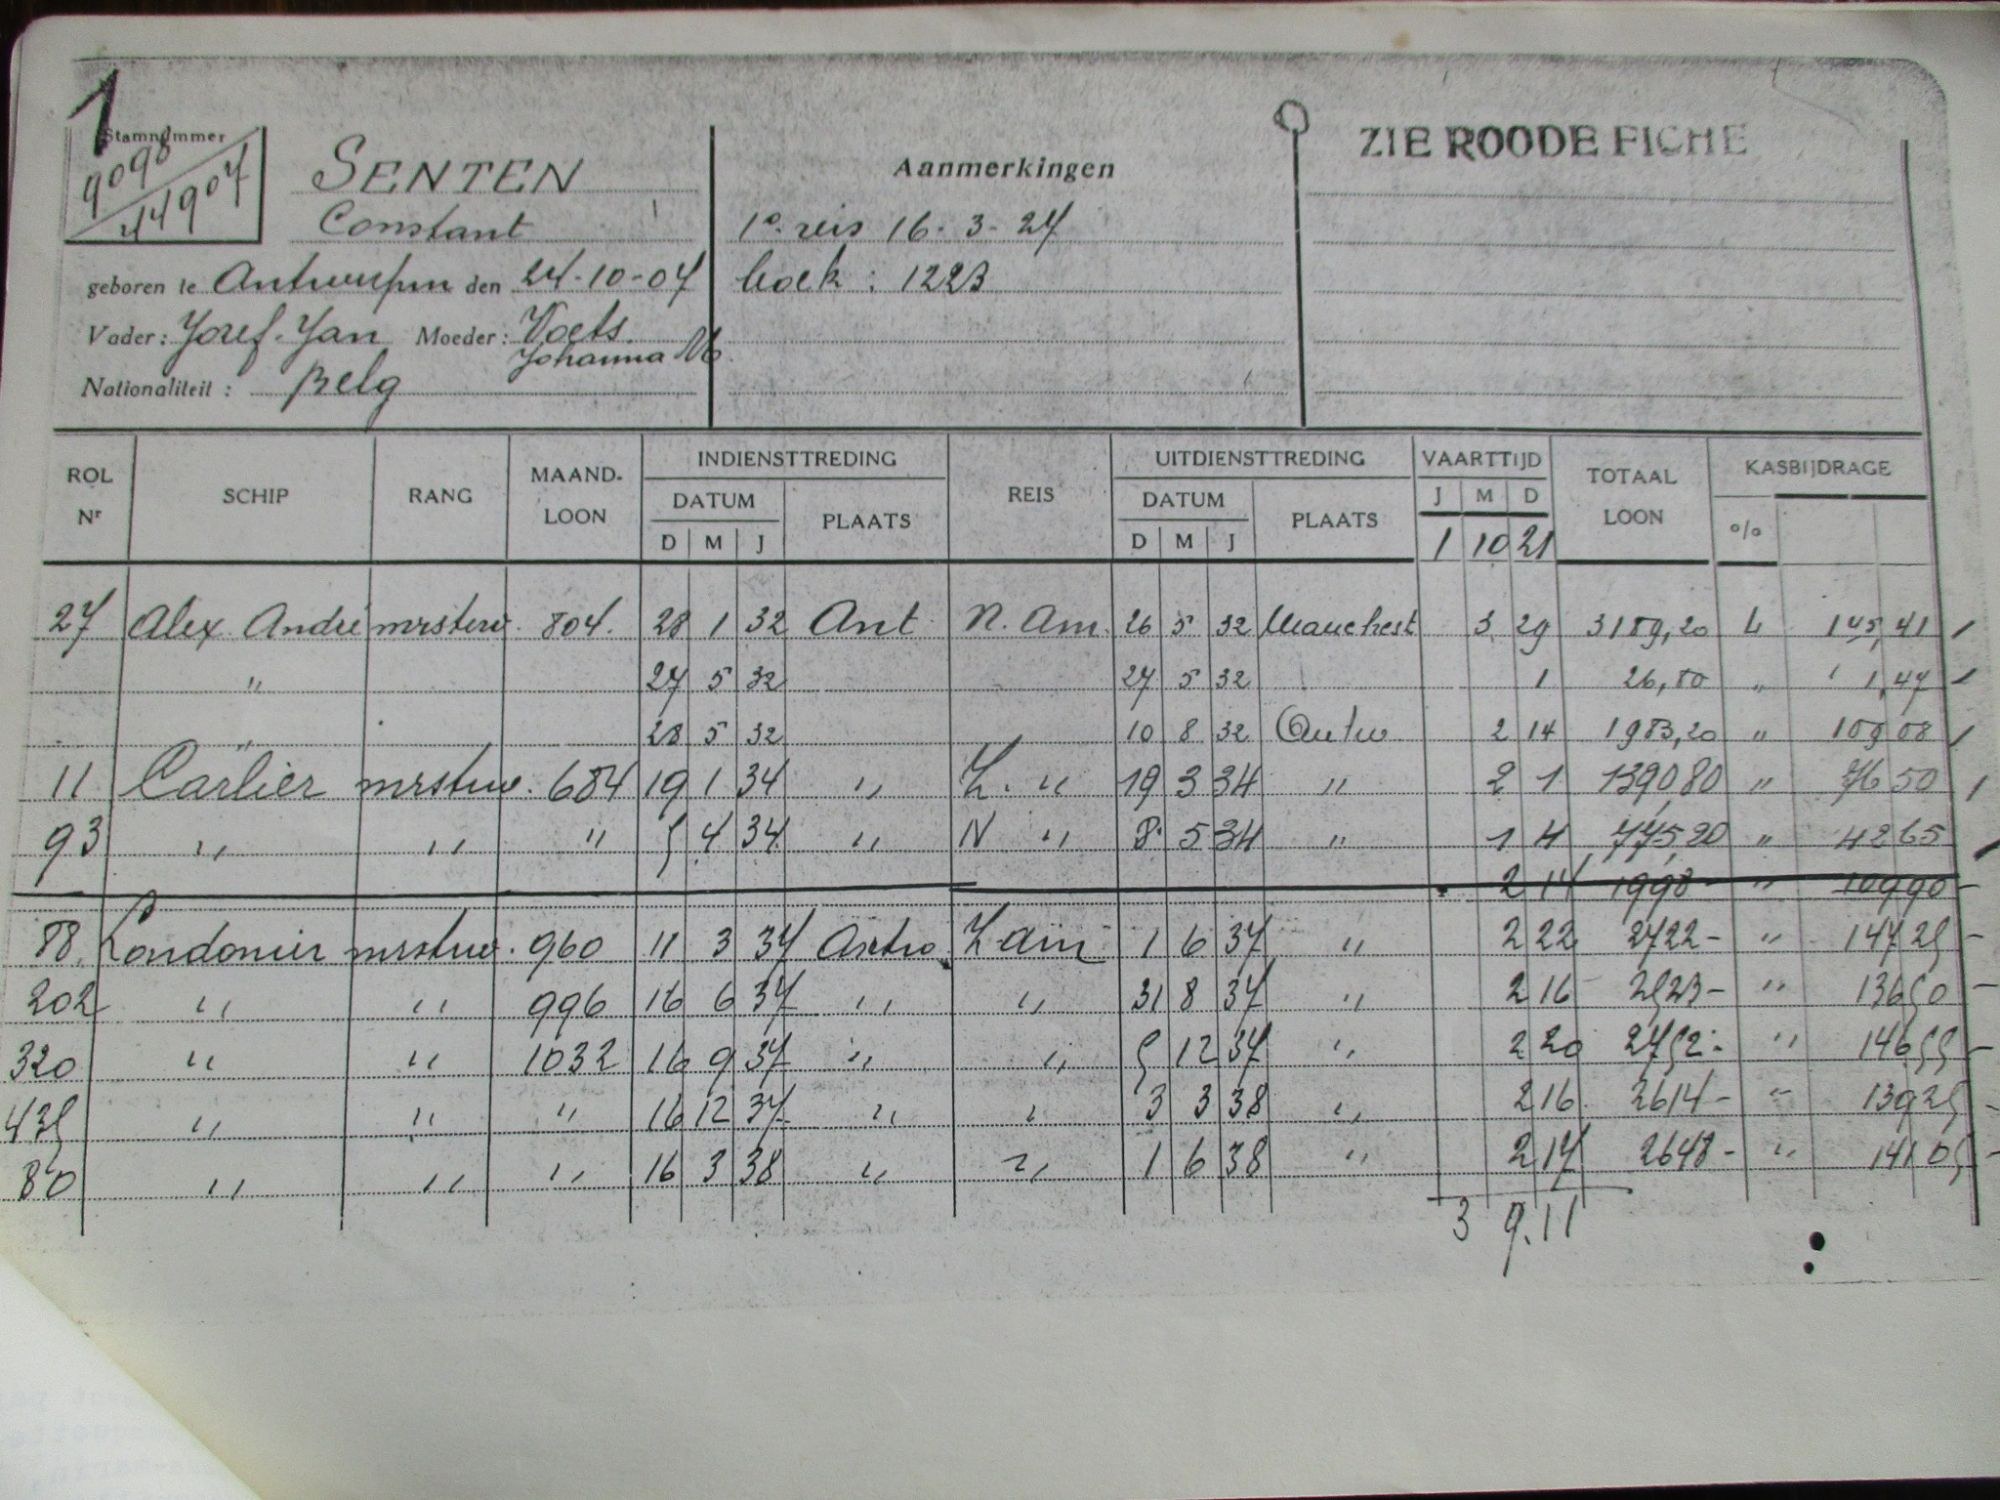 1
Stamnummer
9098
44907
SENTEN
Constant
geboren te Antwerpen den 24-10-07
Vader: Jozef-Jan Moeder: Voets.
Johanna M.
Nationaliteit: Belg
Aanmerkingen
1e reis 16-3-27
boek: 1223
ZIE ROODE FICHE
ROL Nr SCHIP RANG MAAND. LOON INDIENSTTREDING DATUM D M J PLAATS REIS UITDIENSTTREDING DATUM D M J PLAATS VAARTTIJD J M D TOTAAL LOON KASBIJDRAGE %
1 10 21
27 Alex. André mrstew. 804. 28 1 32 Ant N. Am. 26 5 32 Manchest 3 29 3189,20 4 145,41
" 27 5 32 27 5 32 1 26,80 " 1,47
" 28 5 32 10 8 32 Antw 2 14 1983,20 " 109 08
11 Carlier mrstew. 684 19 1 34 " Z. " 19 3 34 " 2 1 1390,80 " 76 50
93 " " " 5 4 34 " N " 8 5 34 " 1 4 775,20 " 42 65
2 14 1998- " 109 90-
88. Londonier mrstew. 960 11 3 37 Antw. Z am 1 6 37 " 2 22 2722- " 147 25-
202 " " 996 16 6 37 " " 31 8 37 " 2 16 2523- " 136 50-
320 " " 1032 16 9 37 " " 5 12 37 " 2 20 2752- " 146 55-
435 " " " 16 12 37 " " 3 3 38 " 2 16 2614- " 139 25-
80 " " " 16 3 38 " " 1 6 38 " 2 17 2648- " 141 05-
3 9.11